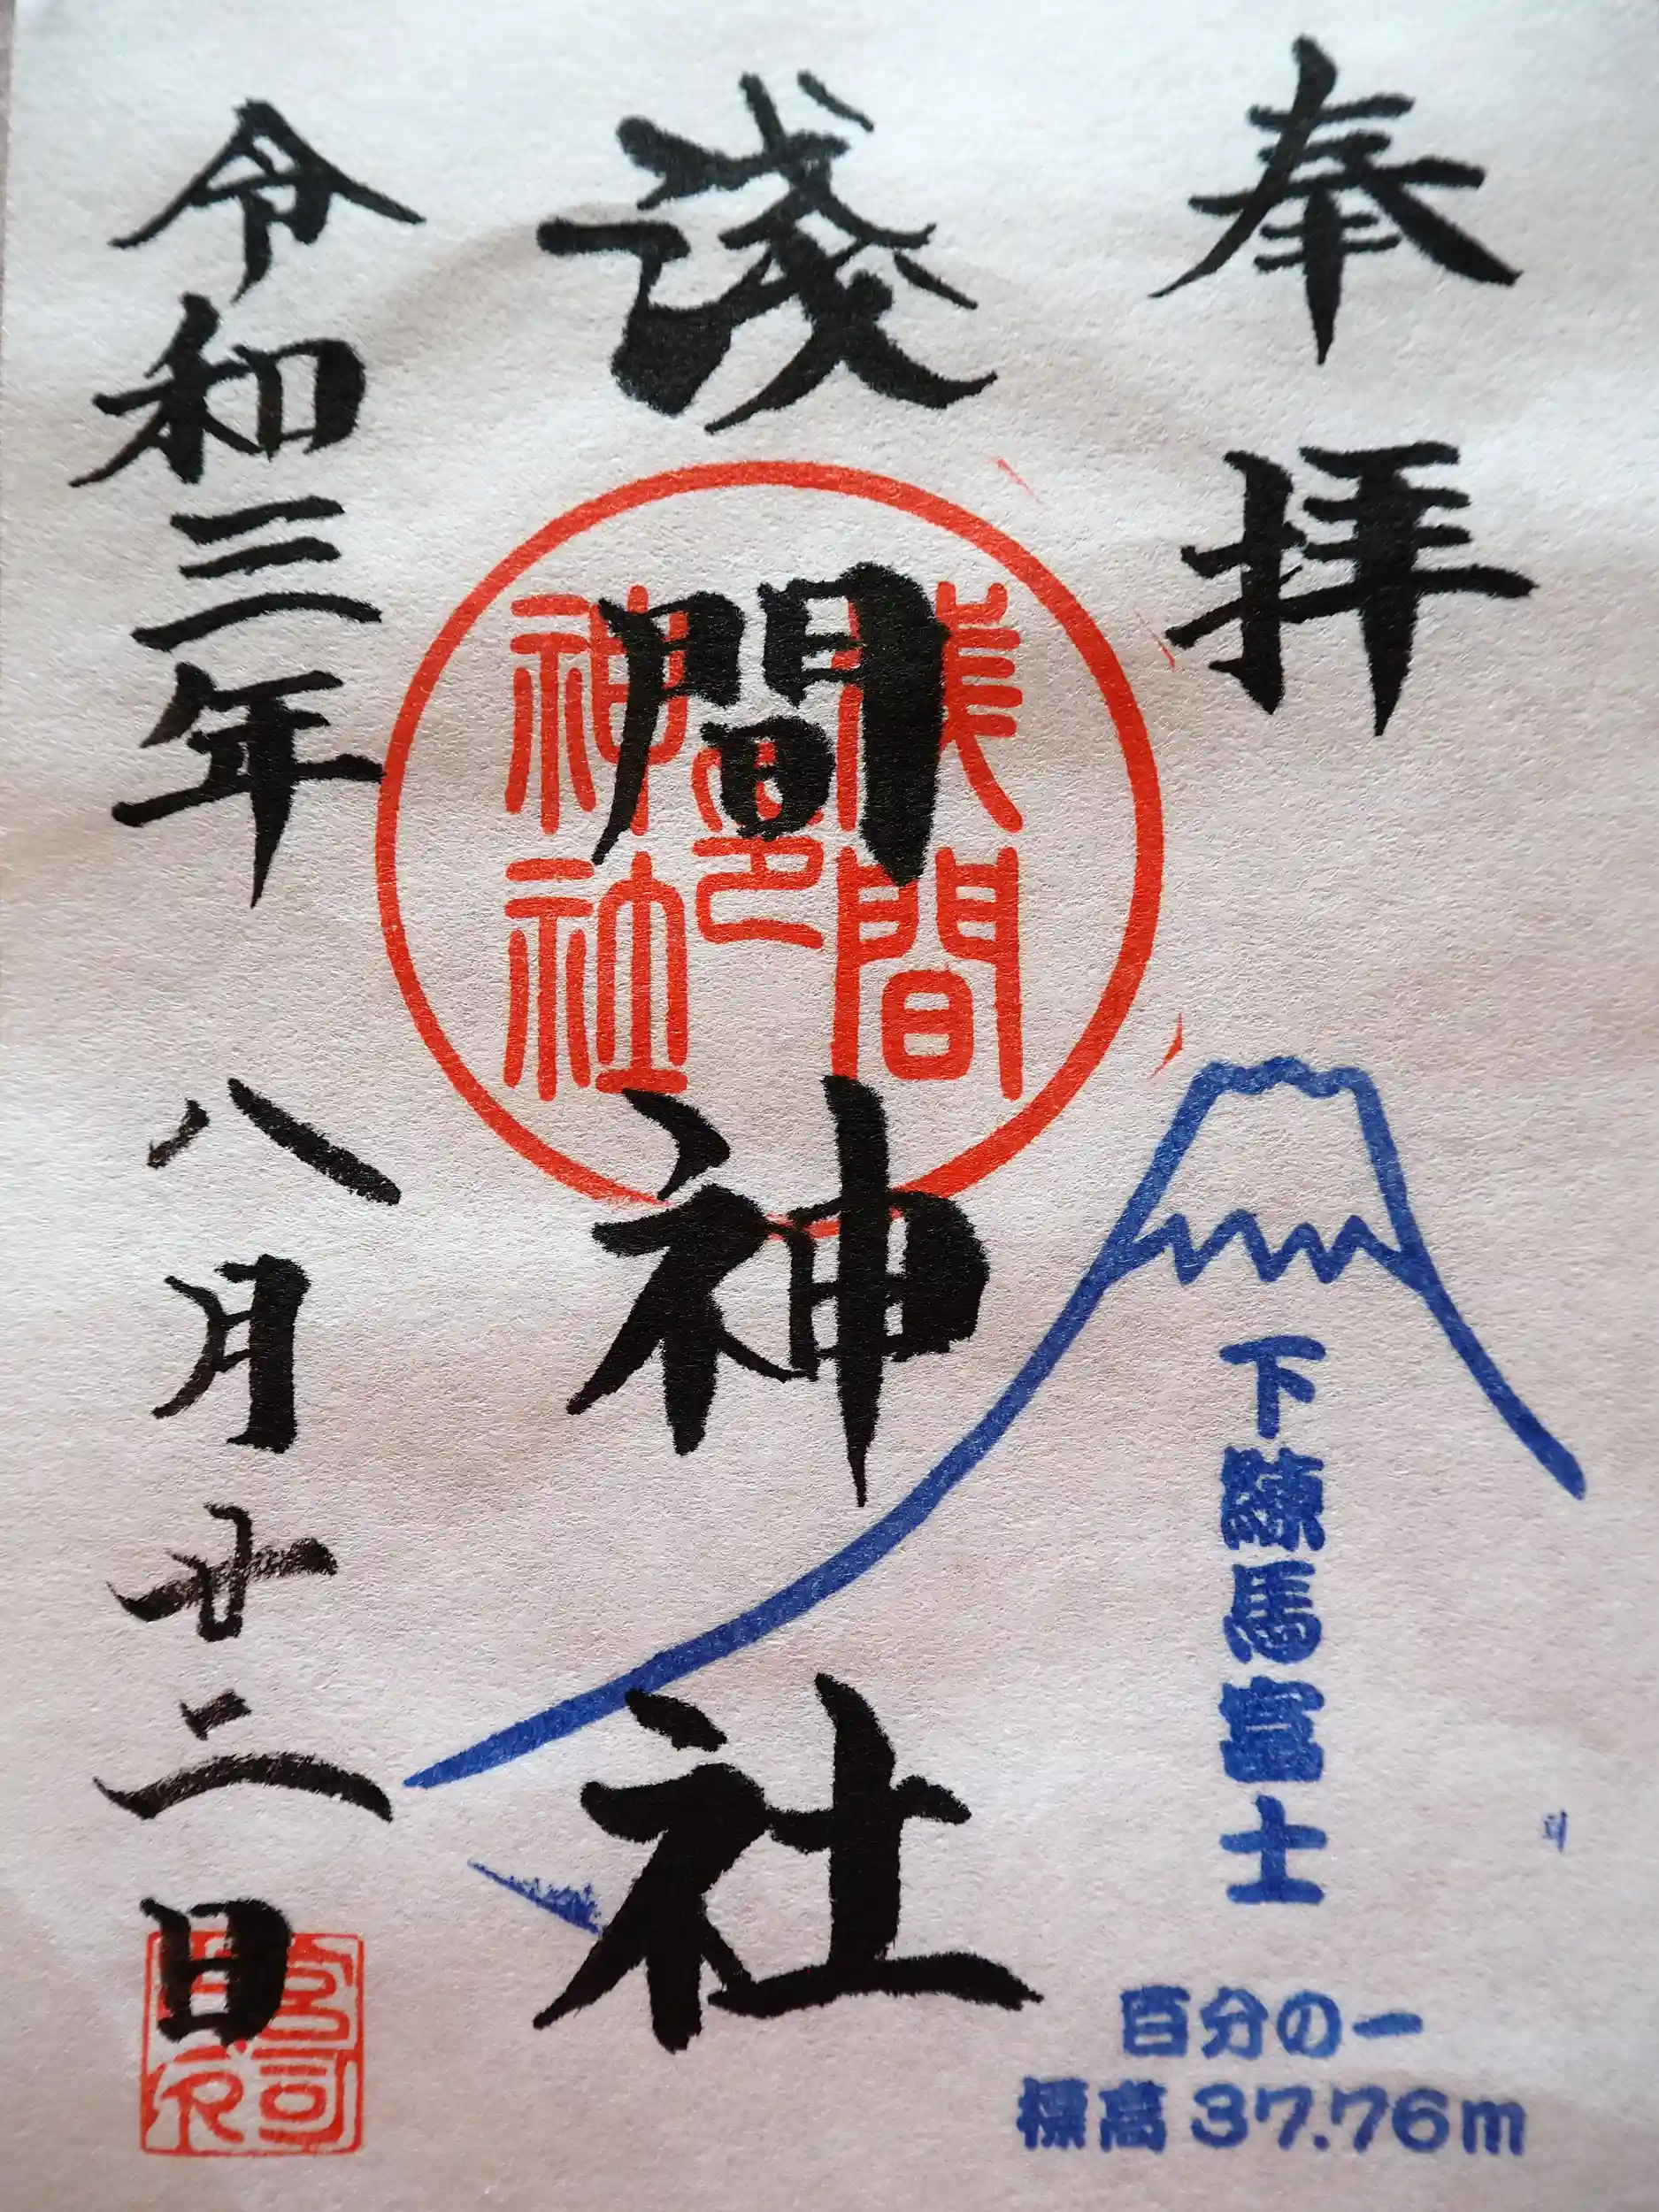 奉拝
下練馬富士
百分の一
標高 37.76m
淺間神社
浅間
神社
令和三年 八月廿二日
宮司